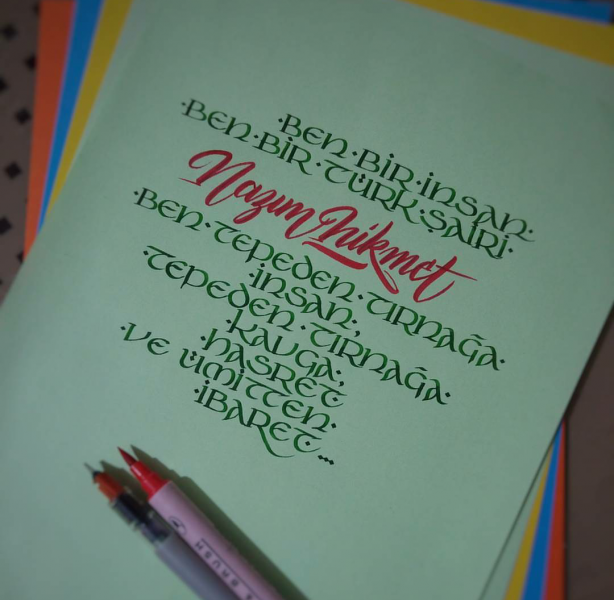 ·BEN·BİR·İNSAN·
·BEN·BİR·TÜRK·ŞAİRİ·
Nazım Hikmet
·BEN·TEPEDEN·TIRNAĞA·
·İNSAN;
·TEPEDEN·TIRNAĞA·
·KAVGA;
·HASRET
·VE ÜMİTTEN·
·İBARET...
BRUSH